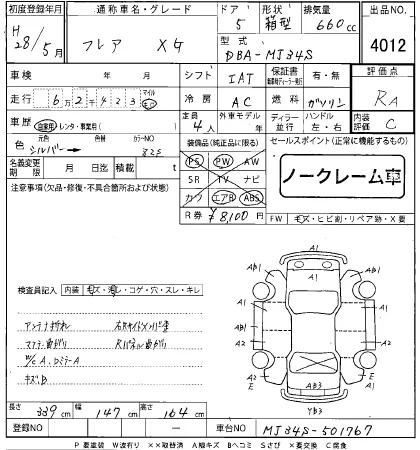 初度登録年月 通称車名・グレード ドア 形状 排気量 出品NO.
H28/5月 フレア XG 5 箱型 660cc 4012
型式 DBA-MJ34S
車検 年 月 シフト IAT 保証書 有・無 評価点
走行 62423 マイル キロ 冷房 AC 燃料 ガソリン RA
車歴 自家用・レンタ・事業用( ) 定員 4人 外車モデル 年 ディーラー 並行 ハンドル 左・右 内装評価 C
色 元色 シルバー 色替 カラーNO 装備品(純正品に限る) セールスポイント(正常に機能するもの)
名義変更期限 月 日迄 積載 t PS PW AW
注意事項(欠品・修復・不具合箇所および状態) SR TV ナビ ノークレーム車
カワ エアB ABS
R券 ¥8,100 FW キズ・ヒビ割・リペア跡・X要
A1
AB1 AB1
A1 A1
検査員記入 内装 キズ・汚レ・コゲ・穴・スレ・キレ
アンテナ折れ
マフラー曲がり
W/C A、DミラーA
キズ、B
A2 A1 A1 A2
A2 A2
E E
AB3
YB3
長さ 339cm 幅 147cm 高さ 164cm
登録NO ー 車台NO MJ34S-501767
P 要塗装 W波有り ××取替済 A線キズ Bヘコミ Sさび ×要交換 C腐食